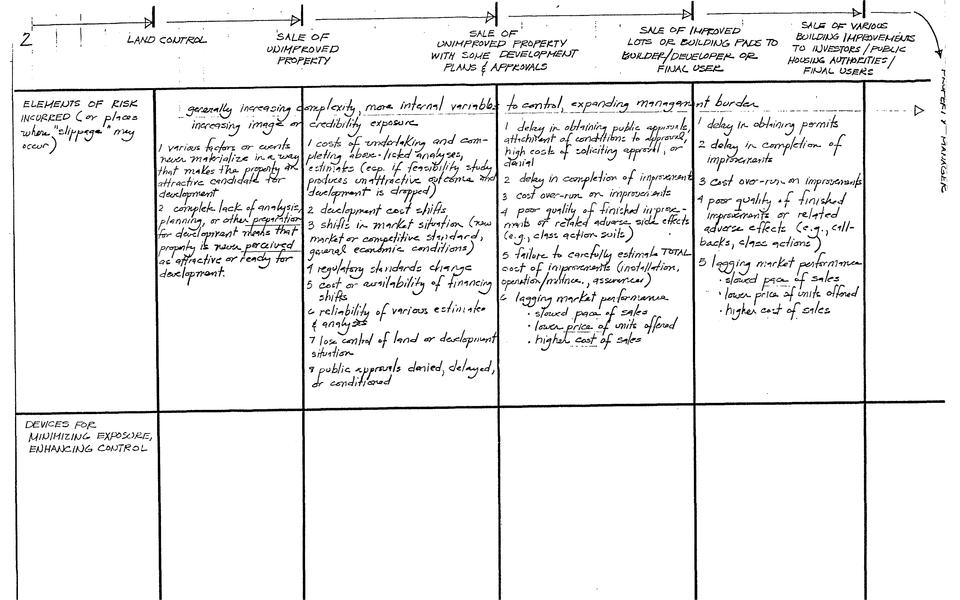 2
LAND CONTROL
SALE OF
UNIMPROVED
PROPERTY
SALE OF
UNIMPROVED PROPERTY
WITH SOME DEVELOPMENT
PLANS & APPROVALS
SALE OF IMPROVED
LOTS OR BUILDING PADS TO
BUILDER/DEVELOPER OR
FINAL USER
SALE OF VARIOUS
BUILDING IMPROVEMENTS
TO INVESTORS/PUBLIC
HOUSING AUTHORITIES/
FINAL USERS
PROPERTY MANAGERS
ELEMENTS OF RISK
INCURRED (or places
where "slippage" may
occur)
generally increasing complexity, more internal variables to control, expanding management burden
increasing image or credibility exposure
1 various factors or events
never materialize in a way
that makes the property an
attractive candidate for
development
2 complete lack of analysis,
planning, or other preparation
for development means that
property is never perceived
as attractive or ready for
development.
1 costs of undertaking and com-
pleting above-listed analyses,
estimates (esp. if feasibility study
produces unattractive outcome and
development is dropped)
2 development cost shifts
3 shifts in market situation (new
market or competitive standard,
general economic conditions)
4 regulatory standards change
5 cost or availability of financing
shifts
6 reliability of various estimates
& analyses
7 lose control of land or development
situation
8 public approvals denied, delayed,
or conditioned
1 delay in obtaining public approvals,
attachment of conditions to approval,
high costs of soliciting approval, or
denial
2 delay in completion of improvements
3 cost over-run on improvements
4 poor quality of finished improve-
ments or related adverse side effects
(e.g., class action suits)
5 failure to carefully estimate TOTAL
cost of improvements (installation,
operation/mntnce., assurances)
6 lagging market performance
· slowed pace of sales
· lower price of units offered
· higher cost of sales
1 delay in obtaining permits
2 delay in completion of
improvements
3 cost over-run on improvements
4 poor quality of finished
improvements or related
adverse effects (e.g., call-
backs, class actions)
5 lagging market performance
· slowed pace of sales
· lower price of units offered
· higher cost of sales
DEVICES FOR
MINIMIZING EXPOSURE,
ENHANCING CONTROL